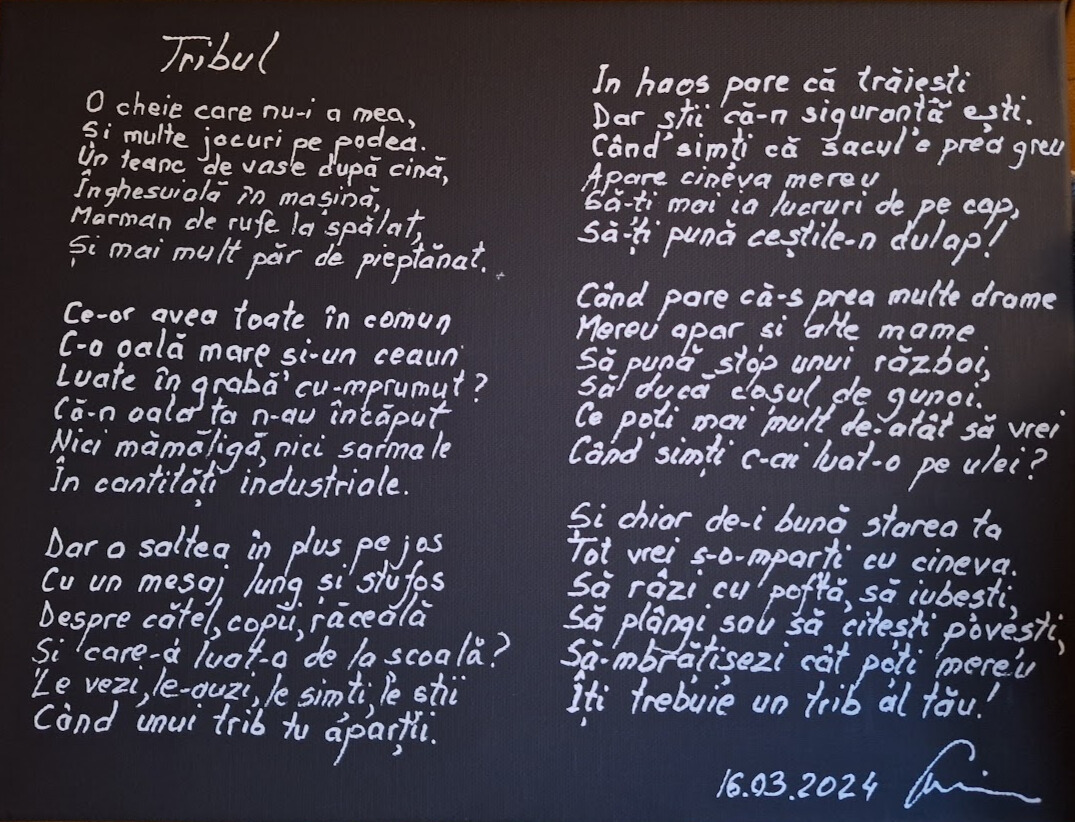 Tribul
O cheie care nu-i a mea,
Și multe jocuri pe podea.
Un teanc de vase după cină,
Înghesuială în mașină,
Morman de rufe la spălat,
Și mai mult păr de pieptănat.
Ce-or avea toate în comun
C-o oală mare și-un ceaun
Luate în grabă cu-mprumut?
Că-n oala ta n-au încăput
Nici mămăligă, nici sarmale
În cantități industriale.
Dar o saltea în plus pe jos
Cu un mesaj lung și stufos
Despre cățel, copii, răceală
Și care-a luat-o de la școală?
Le vezi, le-auzi, le simți, le știi
Când unui trib tu aparții.
In haos pare că trăiești
Dar știi că-n siguranță ești.
Când simți că sacul e prea greu
Apare cineva mereu
Să-ți mai ia lucruri de pe cap,
Să-ți pună ceștile-n dulap!
Când pare că-s prea multe drame
Mereu apar și alte mame
Să pună stop unui război,
Să ducă coșul de gunoi.
Ce poți mai mult de-atât să vrei
Când simți c-ai luat-o pe ulei?
Și chiar de-i bună starea ta
Tot vrei s-o-mparți cu cineva.
Să râzi cu poftă, să iubești,
Să plângi sau să citești povești,
Să-mbrățișezi cât poți mereu
Îți trebuie un trib al tău!
16.03.2024